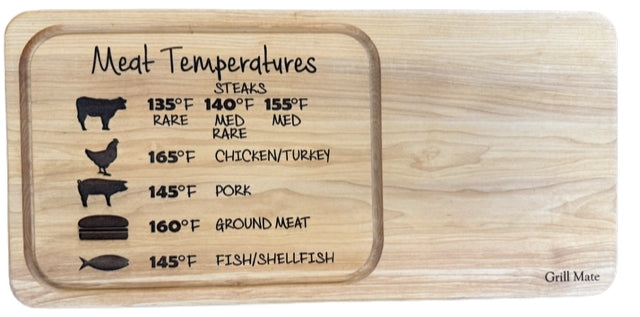 Meat Temperatures
STEAKS
135°F 140°F 155°F
RARE MED RARE MED
165°F CHICKEN/TURKEY
145°F PORK
160°F GROUND MEAT
145°F FISH/SHELLFISH
Grill Mate